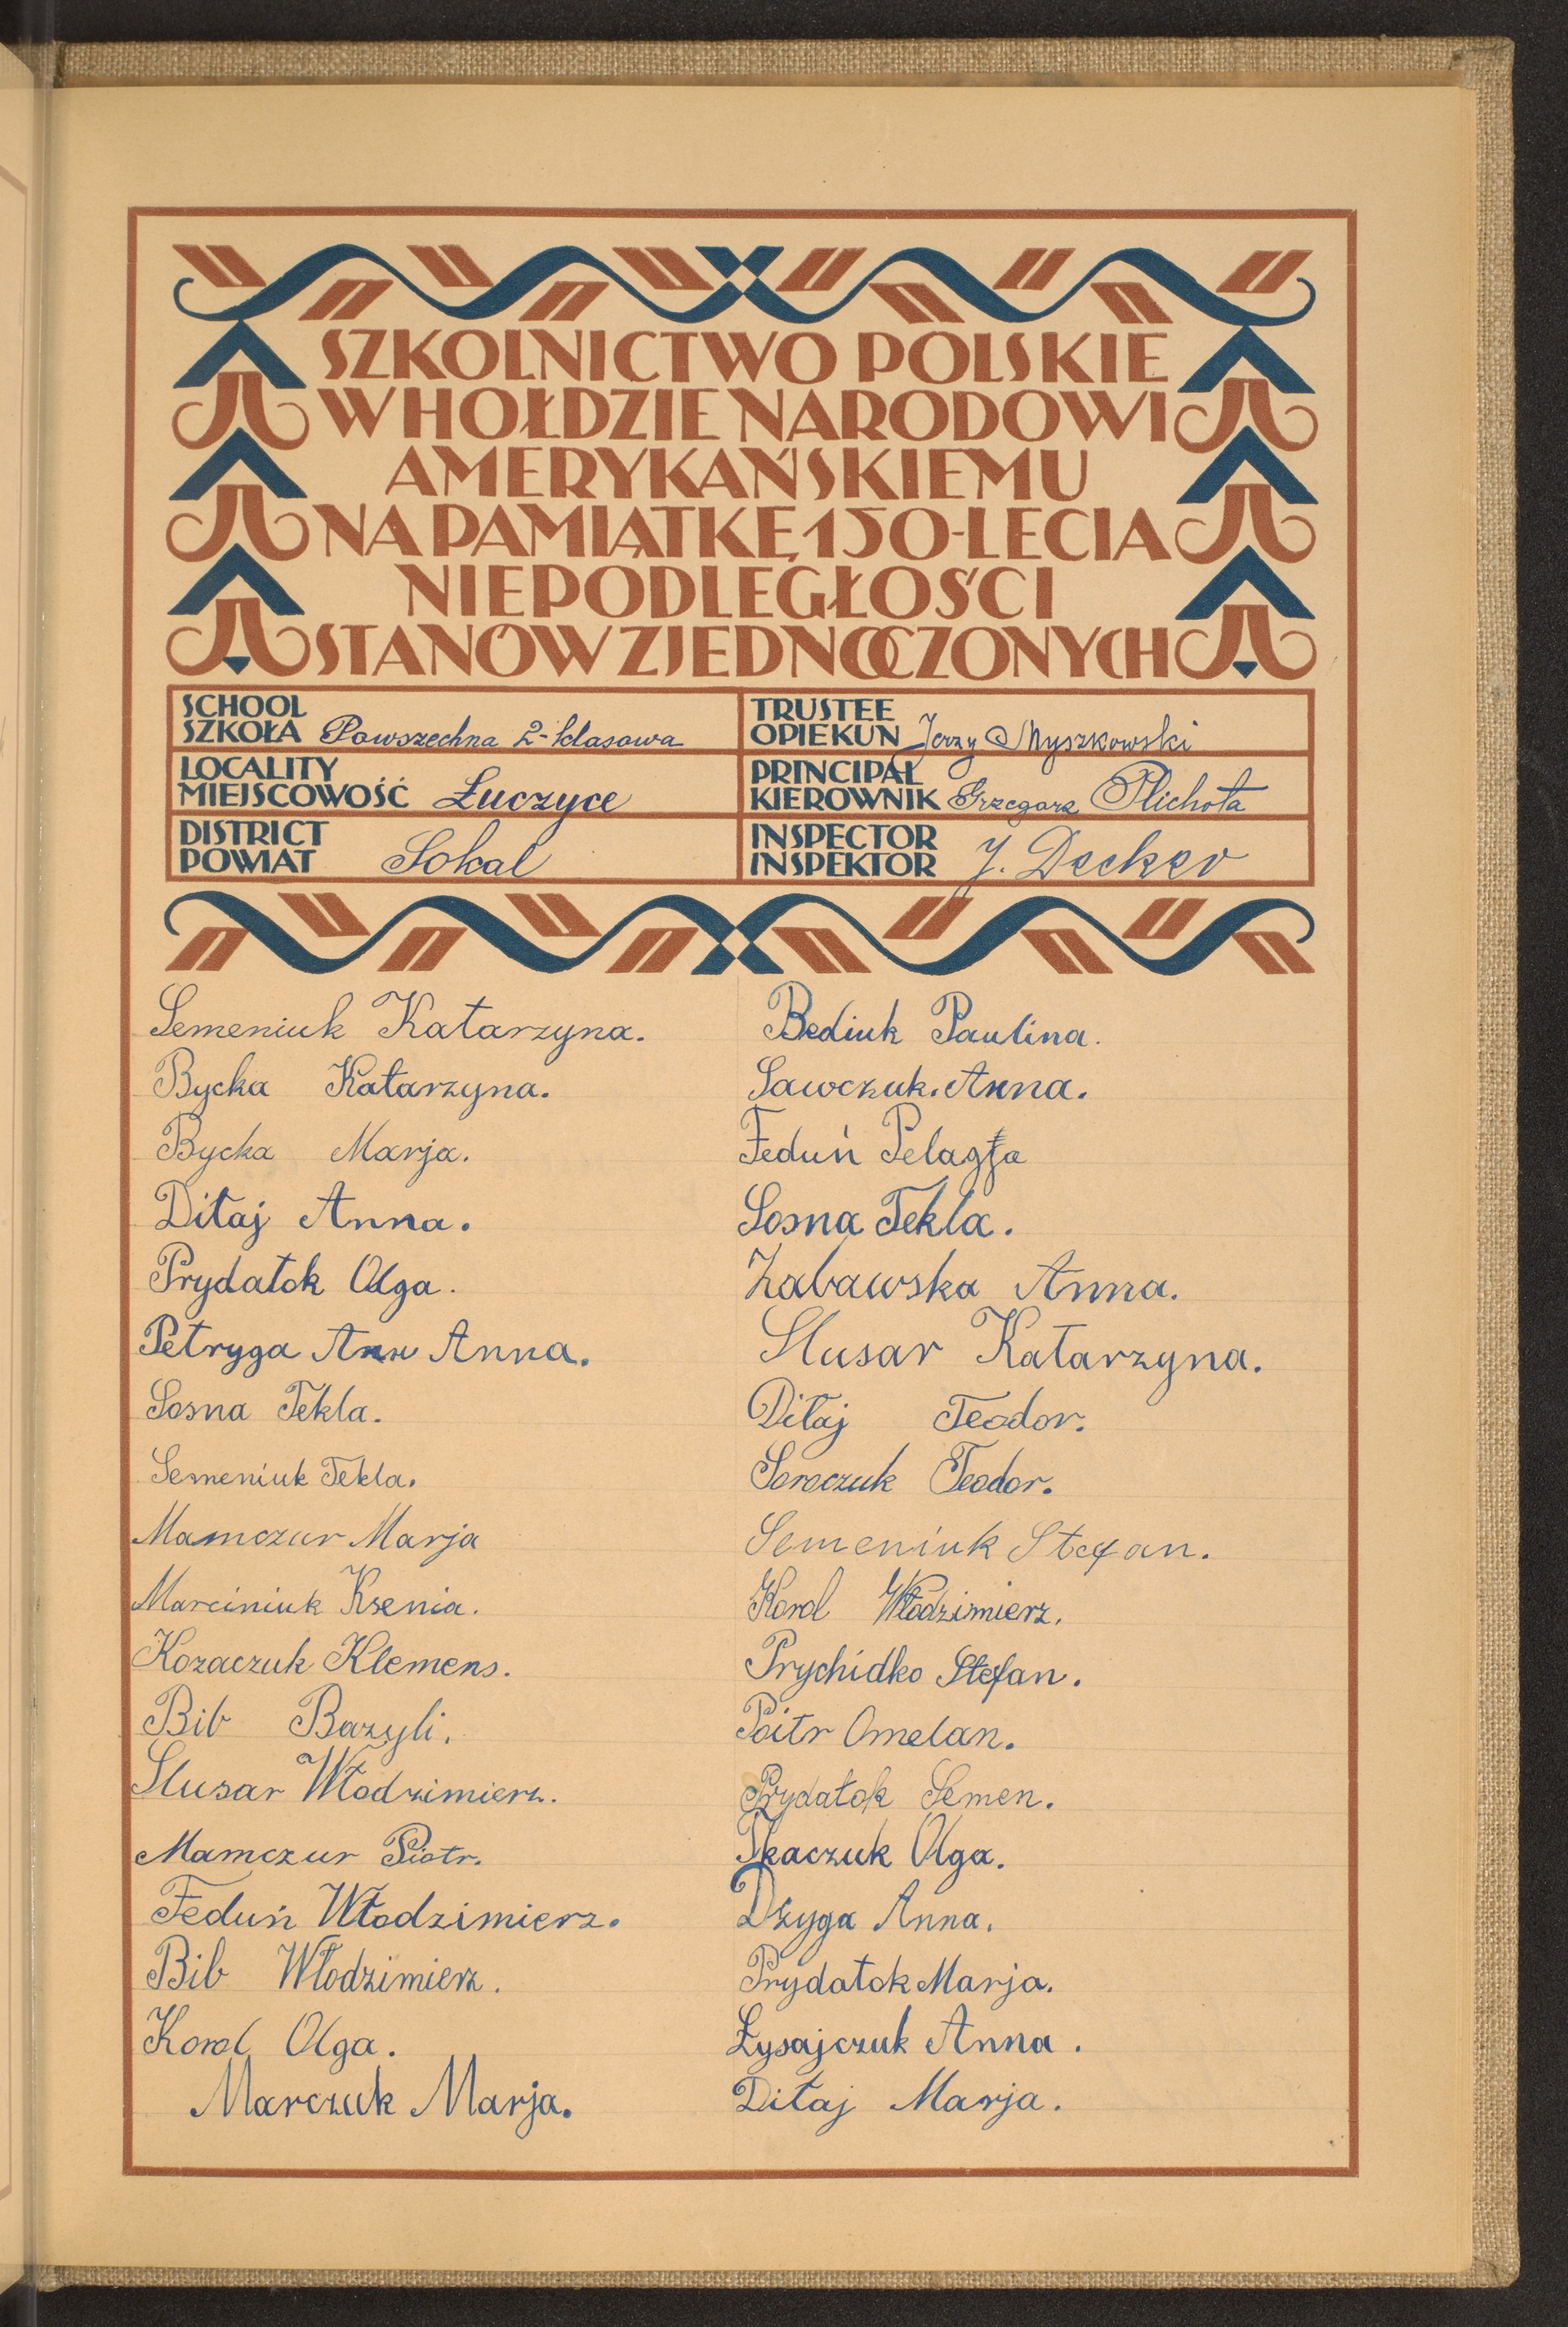 SZKOLNICTWO POLSKIE
W HOŁDZIE NARODOWI
AMERYKAŃSKIEMU
NA PAMIĄTKĘ 150-LECIA
NIEPODLEGŁOŚCI
STANÓW ZJEDNOCZONYCH
SCHOOL
SZKOŁA Powszechna 2-klasowa
LOCALITY
MIEJSCOWOŚĆ Łuczyce
DISTRICT
POWIAT Sokal
TRUSTEE
OPIEKUN Jerzy Myszkowski
PRINCIPAŁ
KIEROWNIK Grzegorz Plichota
INSPECTOR
INSPEKTOR J. Decker
Semeniuk Katarzyna.
Bycka Katarzyna.
Bycka Marja.
Ditaj Anna.
Prydatok Olga.
Petryga Anna.
Sosna Tekla.
Semeniuk Tekla.
Mamczur Marja
Marciniuk Ksenia.
Kozaczuk Klemens.
Bib Bazyli.
Slusar Włodzimierz.
Mamczur Piotr.
Feduń Włodzimierz.
Bib Włodzimierz.
Korol Olga.
Marczuk Marja.
Bediuk Paulina.
Sawczuk. Anna.
Feduń
Sosna Tekla.
Zabawska Anna.
Slusar Katarzyna.
Ditaj Teodor.
Soroczuk Teodor.
Semeniuk Stefan.
Korol Włodzimierz.
Prychidko Stefan.
Poitr Omelan.
Prydatok Semen.
Tkaczuk Olga.
Dzyga Anna.
Prydatok Marja.
Łysajczuk Anna.
Ditaj Marja.